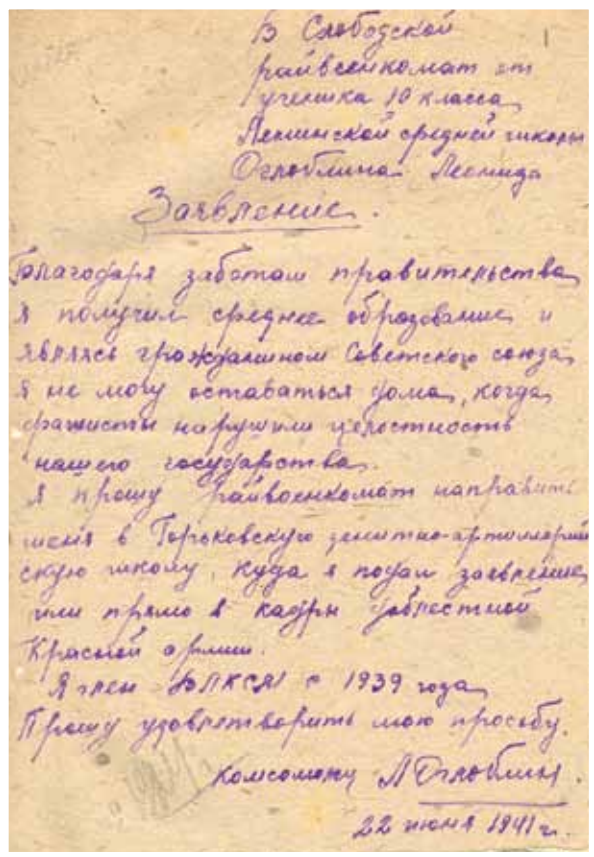 В Слободской
райвоенкомат от
ученика 10 класса
Ленинской средней школы
Оглоблина Леонида
Заявление.
Благодаря заботам правительства
я получил среднее образование и
являясь гражданином Советского союза
я не могу оставаться дома, когда
фашисты нарушили целостность
нашего государства.
Я прошу райвоенкомат направить
меня в Горьковскую зенитно-артиллерий
скую школу, куда я подал заявление
или прямо в кадры доблестной
Красной армии.
Я член ВЛКСМ с 1939 года
Прошу удовлетворить мою просьбу.
комсомолец Л Оглоблин.
22 июня 1941 г.